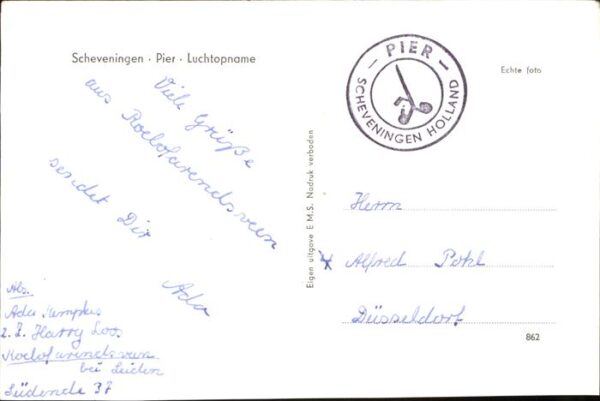 Scheveningen · Pier · Luchtopname
Echte foto
- PIER -
SCHEVENINGEN HOLLAND
Viele Grüße
aus Roelofarendsveen
sendet Dir
Ada
Abs.
Ada
z. Z. Harry Loos
Roelofarendsveen
bei Leiden
Südende 37
Eigen uitgave E.M.S. Nadruk verboden
Herrn
Alfred Pohl
Düsseldorf
862